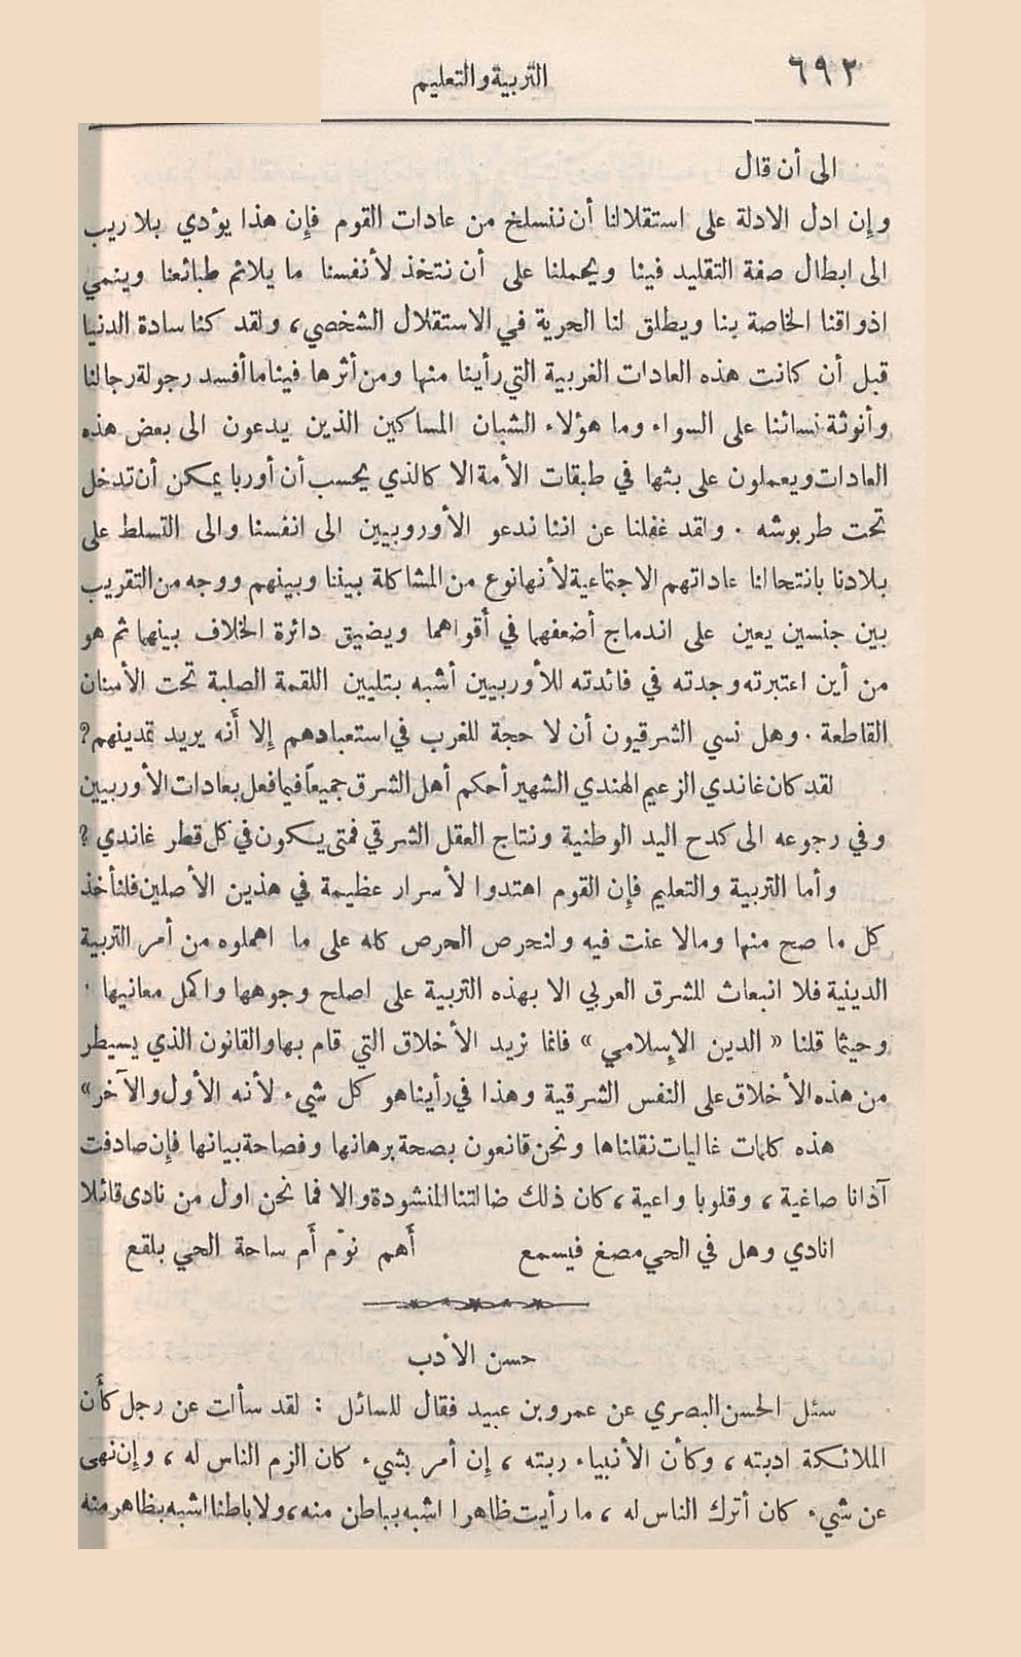 ٦٩٢
التربية والتعليم
الى أن قال
وإن ادل الادلة على استقلالنا أن ننسلخ من عادات القوم فإن هذا يؤدي بلا ريب
الى ابطال صفة التقليد فينا ويحملنا على أن نتخذ لأنفسنا ما يلائم طبائعنا وينمي
اذواقنا الخاصة بنا ويطلق لنا الحرية في الاستقلال الشخصي، ولقد كنا سادة الدنيا
قبل أن كانت هذه العادات الغربية التي رأينا منها ومن أثرها فينا ما أفسد رجولة رجالنا
وأنوثة نسائنا على السواء وما هؤلاء الشبان المساكين الذين يدعون الى بعض هذه
العادات ويعملون على بثها في طبقات الأمة الا كالذي يحسب أن أوربا يمكن أن تدخل
تحت طربوشه . ولقد غفلنا عن اننا ندعو الأوروبيين الى انفسنا والى التسلط على
بلادنا بانتحالنا عاداتهم الاجتماعية لأنها نوع من المشاكلة بيننا وبينهم ووجه من التقريب
بين جنسين يعين على اندماج أضعفهما في أقواهما ويضيق دائرة الخلاف بينهما ثم هو
من أين اعتبرته وجدته في فائدته للأوربيين أشبه بتليين اللقمة الصلبة تحت الأسنان
القاطعة . وهل نسي الشرقيون أن لا حجة للغرب في استعبادهم إلا أنه يريد تمدينهم؟
لقد كان غاندي الزعيم الهندي الشهير أحكم أهل الشرق جميعاً فيما فعل بعادات الأوربيين
وفي رجوعه الى كدح اليد الوطنية ونتاج العقل الشرقي فمتى يكون في كل قطر غاندي ؟
وأما التربية والتعليم فإن القوم اهتدوا لأسرار عظيمة في هذين الأصلين فلنأخذ
كل ما صح منها ومالا عنت فيه ولنحرص الحرص كله على ما اهملوه من أمر التربية
الدينية فلا انبعاث للشرق العربي الا بهذه التربية على اصلح وجوهها واكمل معانيها .
وحيثما قلنا « الدين الإسلامي » فانما نريد الأخلاق التي قام بها والقانون الذي يسيطر
من هذه الأخلاق على النفس الشرقية وهذا في رأينا هو كل شيء لأنه الأول والآخر»
هذه كلمات غاليات نقلناها ونحن قانعون بصحة برهانها وفصاحة بيانها فإن صادفت
آذانا صاغية ، وقلوبا واعية ، كان ذلك ضالتنا المنشودة والا فما نحن اول من نادى قائلا
انادي وهل في الحي مصغ فيسمع أهم نوّم أم ساحة الحي بلقع
حسن الأدب
سئل الحسن البصري عن عمرو بن عبيد فقال للسائل : لقد سألت عن رجل كأن
الملائكة ادبته ، وكأن الأنبياء ربته ، إن أمر بشيء كان الزم الناس له ، وإن نهى
عن شيء كان أترك الناس له ، ما رأيت ظاهرا اشبه بباطن منه، ولا باطنا اشبه بظاهر منه